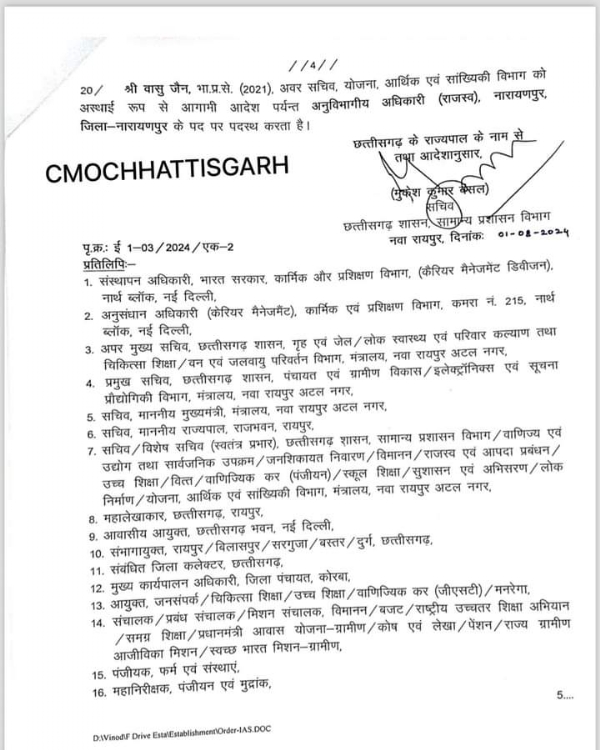 //4//
20/ श्री वासु जैन, भा.प्र.से. (2021), अवर सचिव, योजना, आर्थिक एवं सांख्यिकी विभाग को
अस्थाई रूप से आगामी आदेश पर्यन्त अनुविभागीय अधिकारी (राजस्व), नारायणपुर,
जिला–नारायणपुर के पद पर पदस्थ करता है।
छत्तीसगढ़ के राज्यपाल के नाम से
तथा आदेशानुसार,
CMOCHHATTISGARH
(मुकेश कुमार बंसल)
सचिव
छत्तीसगढ़ शासन, सामान्य प्रशासन विभाग
नवा रायपुर, दिनांकः 01-08-2024
पृ.क्र.: ई 1-03/2024/एक-2
प्रतिलिपिः–
1. संस्थापन अधिकारी, भारत सरकार, कार्मिक और प्रशिक्षण विभाग, (कैरियर मैनेजमेंट डिवीजन),
नार्थ ब्लॉक, नई दिल्ली,
2. अनुसंधान अधिकारी (केरियर मैनेजमैंट), कार्मिक एवं प्रशिक्षण विभाग, कमरा नं. 215, नार्थ
ब्लॉक, नई दिल्ली,
3. अपर मुख्य सचिव, छत्तीसगढ़ शासन, गृह एवं जेल/लोक स्वास्थ्य एवं परिवार कल्याण तथा
चिकित्सा शिक्षा/वन एवं जलवायु परिवर्तन विभाग, मंत्रालय, नवा रायपुर अटल नगर,
4. प्रमुख सचिव, छत्तीसगढ़ शासन, पंचायत एवं ग्रामीण विकास/इलेक्ट्रॉनिक्स एवं सूचना
प्रौद्योगिकी विभाग, मंत्रालय, नवा रायपुर अटल नगर,
5. सचिव, माननीय मुख्यमंत्री, मंत्रालय, नवा रायपुर अटल नगर,
6. सचिव, माननीय राज्यपाल, राजभवन, रायपुर,
7. सचिव/विशेष सचिव (स्वतंत्र प्रभार), छत्तीसगढ़ शासन, सामान्य प्रशासन विभाग/वाणिज्य एवं
उद्योग तथा सार्वजनिक उपक्रम/जनशिकायत निवारण/विमानन/राजस्व एवं आपदा प्रबंधन/
उच्च शिक्षा/वित्त/वाणिज्यिक कर (पंजीयन)/स्कूल शिक्षा/सुशासन एवं अभिसरण/लोक
निर्माण/योजना, आर्थिक एवं सांख्यिकी विभाग, मंत्रालय, नवा रायपुर अटल नगर,
8. महालेखाकार, छत्तीसगढ़, रायपुर,
9. आवासीय आयुक्त, छत्तीसगढ़ भवन, नई दिल्ली,
10. संभागायुक्त, रायपुर/बिलासपुर/सरगुजा/बस्तर/दुर्ग, छत्तीसगढ़,
11. संबंधित जिला कलेक्टर, छत्तीसगढ़,
12. मुख्य कार्यपालन अधिकारी, जिला पंचायत, कोरबा,
13. आयुक्त, जनसंपर्क/चिकित्सा शिक्षा/उच्च शिक्षा/वाणिज्यिक कर (जीएसटी)/मनरेगा,
14. संचालक/प्रबंध संचालक/मिशन संचालक, विमानन/बजट/राष्ट्रीय उच्चतर शिक्षा अभियान
/समग्र शिक्षा/प्रधानमंत्री आवास योजना–ग्रामीण/कोष एवं लेखा/पेंशन/राज्य ग्रामीण
आजीविका मिशन/स्वच्छ भारत मिशन–ग्रामीण,
15. पंजीयक, फर्म एवं संस्थाएं,
16. महानिरीक्षक, पंजीयन एवं मुद्रांक,
5....
D:\Vinod\F Drive Esta\Establishment\Order-IAS.DOC